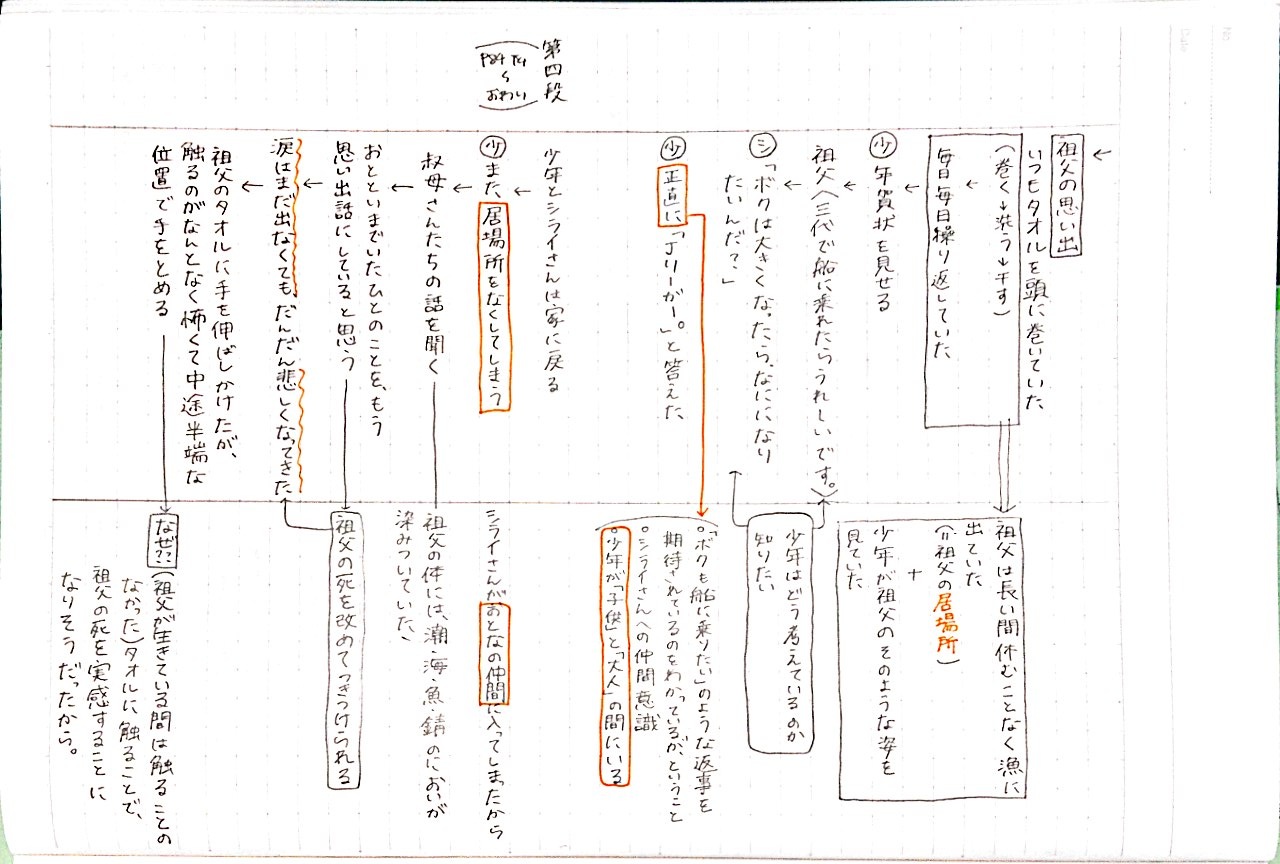 No
Date
祖父の思い出
いつもタオルを頭に巻いていた
(巻く→洗う→干す)
毎日毎日繰り返していた
少 年賀状を見せる
祖父〈三代で船に乗れたらうれしいです。〉
シ「ボクは大きくなったら、なにになり
たいんだ?」
少 正直に「Jリーガー」。と答えた
祖父は長い間休むことなく漁に
出ていた
(=祖父の居場所)
+
少年が祖父のそのような姿を
見ていた
少年はどう考えているのか
知りたい
「ボクも船に乗りたい」のような返事を
期待されているのをわかっているが、ということ
○シライさんへの仲間意識
○少年が「子供」と「大人」の間にいる
第四段
おわり
少年とシライさんは家に戻る
少 また居場所をなくしてしまう
叔母さんたちの話を聞く
おとといまでいたひとのことを、もう
思い出話にしていると思う
涙はまだ出なくても、だんだん悲しくなってきた
祖父のタオルに手を伸ばしかけたが、
触るのがなんとなく怖くて中途半端な
位置で手をとめる
シライさんがおとなの仲間に入ってしまったから
祖父の体には、潮・海・魚・錆のにおいが
染みついていた、
祖父の死を改めてつきつけられる
なぜ??(祖父が生きている間は触ることの
なかった)タオルに触ることで、
祖父の死を実感することに
なりそうだったから。